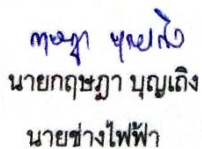 กฤษฎา บุญเถิง
นายกฤษฎา บุญเถิง
นายช่างไฟฟ้า